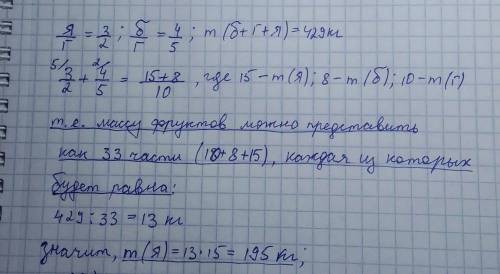 Я/Г = 3/2 ; б/Г = 4/5 ; m(б+Г+Я) = 429 кг
5/ 3/2 + 2/ 4/5 = 15+8/10 , где 15 – m(Я); 8 – m(б); 10 – m(Г)
т.е. массу фруктов можно представить
как 33 части (10+8+15), каждая из которых
будет равна:
429 : 33 = 13 кг
значит, m(Я) = 13·15 = 195 кг;